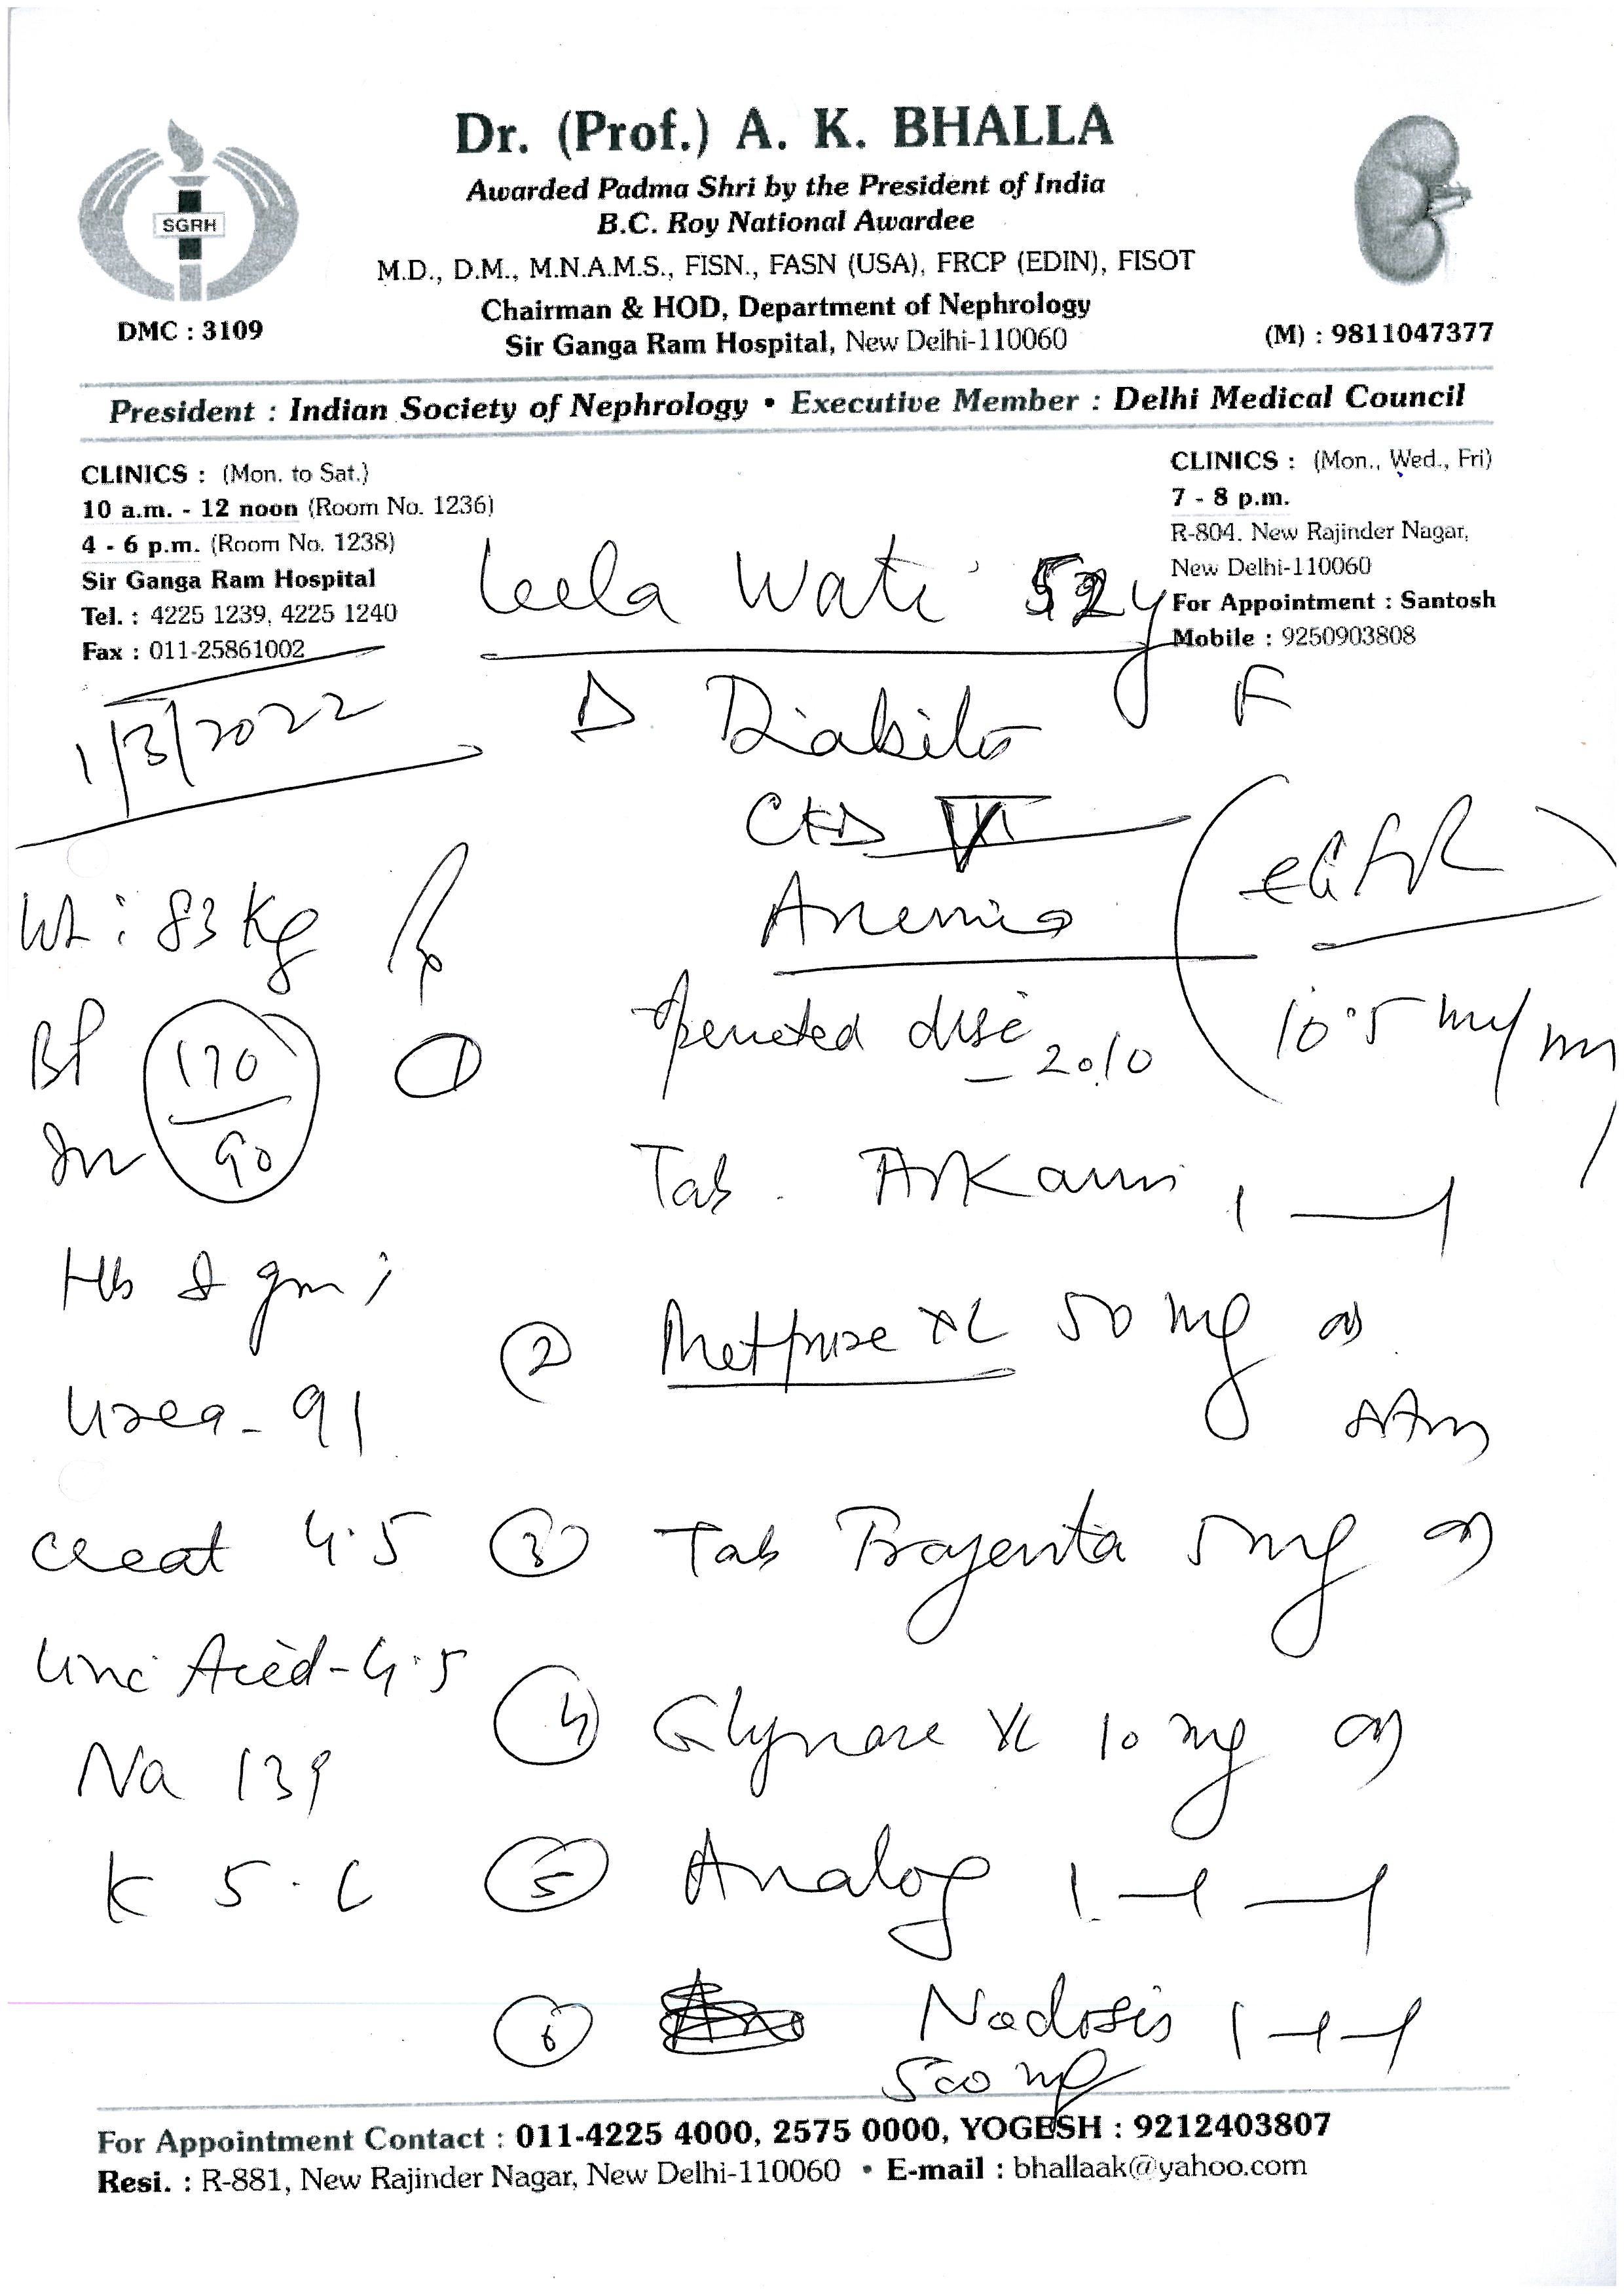 Dr. (Prof.) A. K. BHALLA
Awarded Padma Shri by the President of India
B.C. Roy National Awardee
M.D., D.M., M.N.A.M.S., FISN., FASN (USA), FRCP (EDIN), FISOT
Chairman & HOD, Department of Nephrology
Sir Ganga Ram Hospital, New Delhi-110060
SGRH
DMC : 3109
(M) : 9811047377
President : Indian Society of Nephrology • Executive Member : Delhi Medical Council
CLINICS : (Mon. to Sat.)
10 a.m. - 12 noon (Room No. 1236)
4 - 6 p.m. (Room No. 1238)
Sir Ganga Ram Hospital
Tel. : 4225 1239, 4225 1240
Fax : 011-25861002
CLINICS : (Mon., Wed., Fri)
7 - 8 p.m.
R-804. New Rajinder Nagar,
New Delhi-110060
For Appointment : Santosh
Mobile : 9250903808
Leela Wati 52y
F
1/3/2022
Δ Diabites
CKD V
Anemia
(eGFR
10.5 ml/mn)
operated disc
- 2010
Wt : 83 Kg
BP 170/90
Hb 8 gm
Urea - 91
Creat 4.5
Uric Acid - 4.5
Na 139
K 5.
Rx
① Tab. Arkamin 1—1
② Metpure XL 50 mg OD
③ Tab Trajenta 5mg OD
④ Glynase XL 10 mg OD
⑤ Analog 1-1-1
⑥ Nodosis 1-1-1
500 mg
For Appointment Contact : 011-4225 4000, 2575 0000, YOGESH : 9212403807
Resi. : R-881, New Rajinder Nagar, New Delhi-110060 • E-mail : bhallaak@yahoo.com